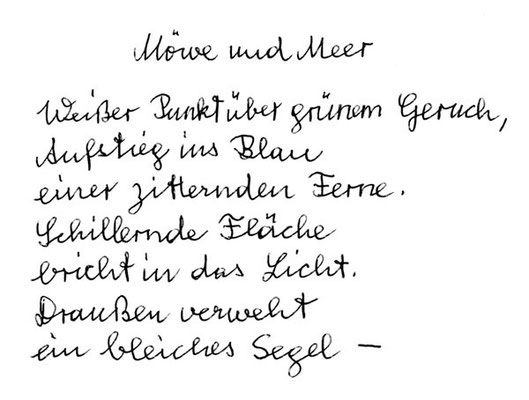 Möwe und Meer
Weißer Punkt über grünem Geruch,
Aufstieg ins Blau
einer zitternden Ferne.
Schillernde Fläche
bricht in das Licht.
Draußen verweht
ein bleiches Segel –